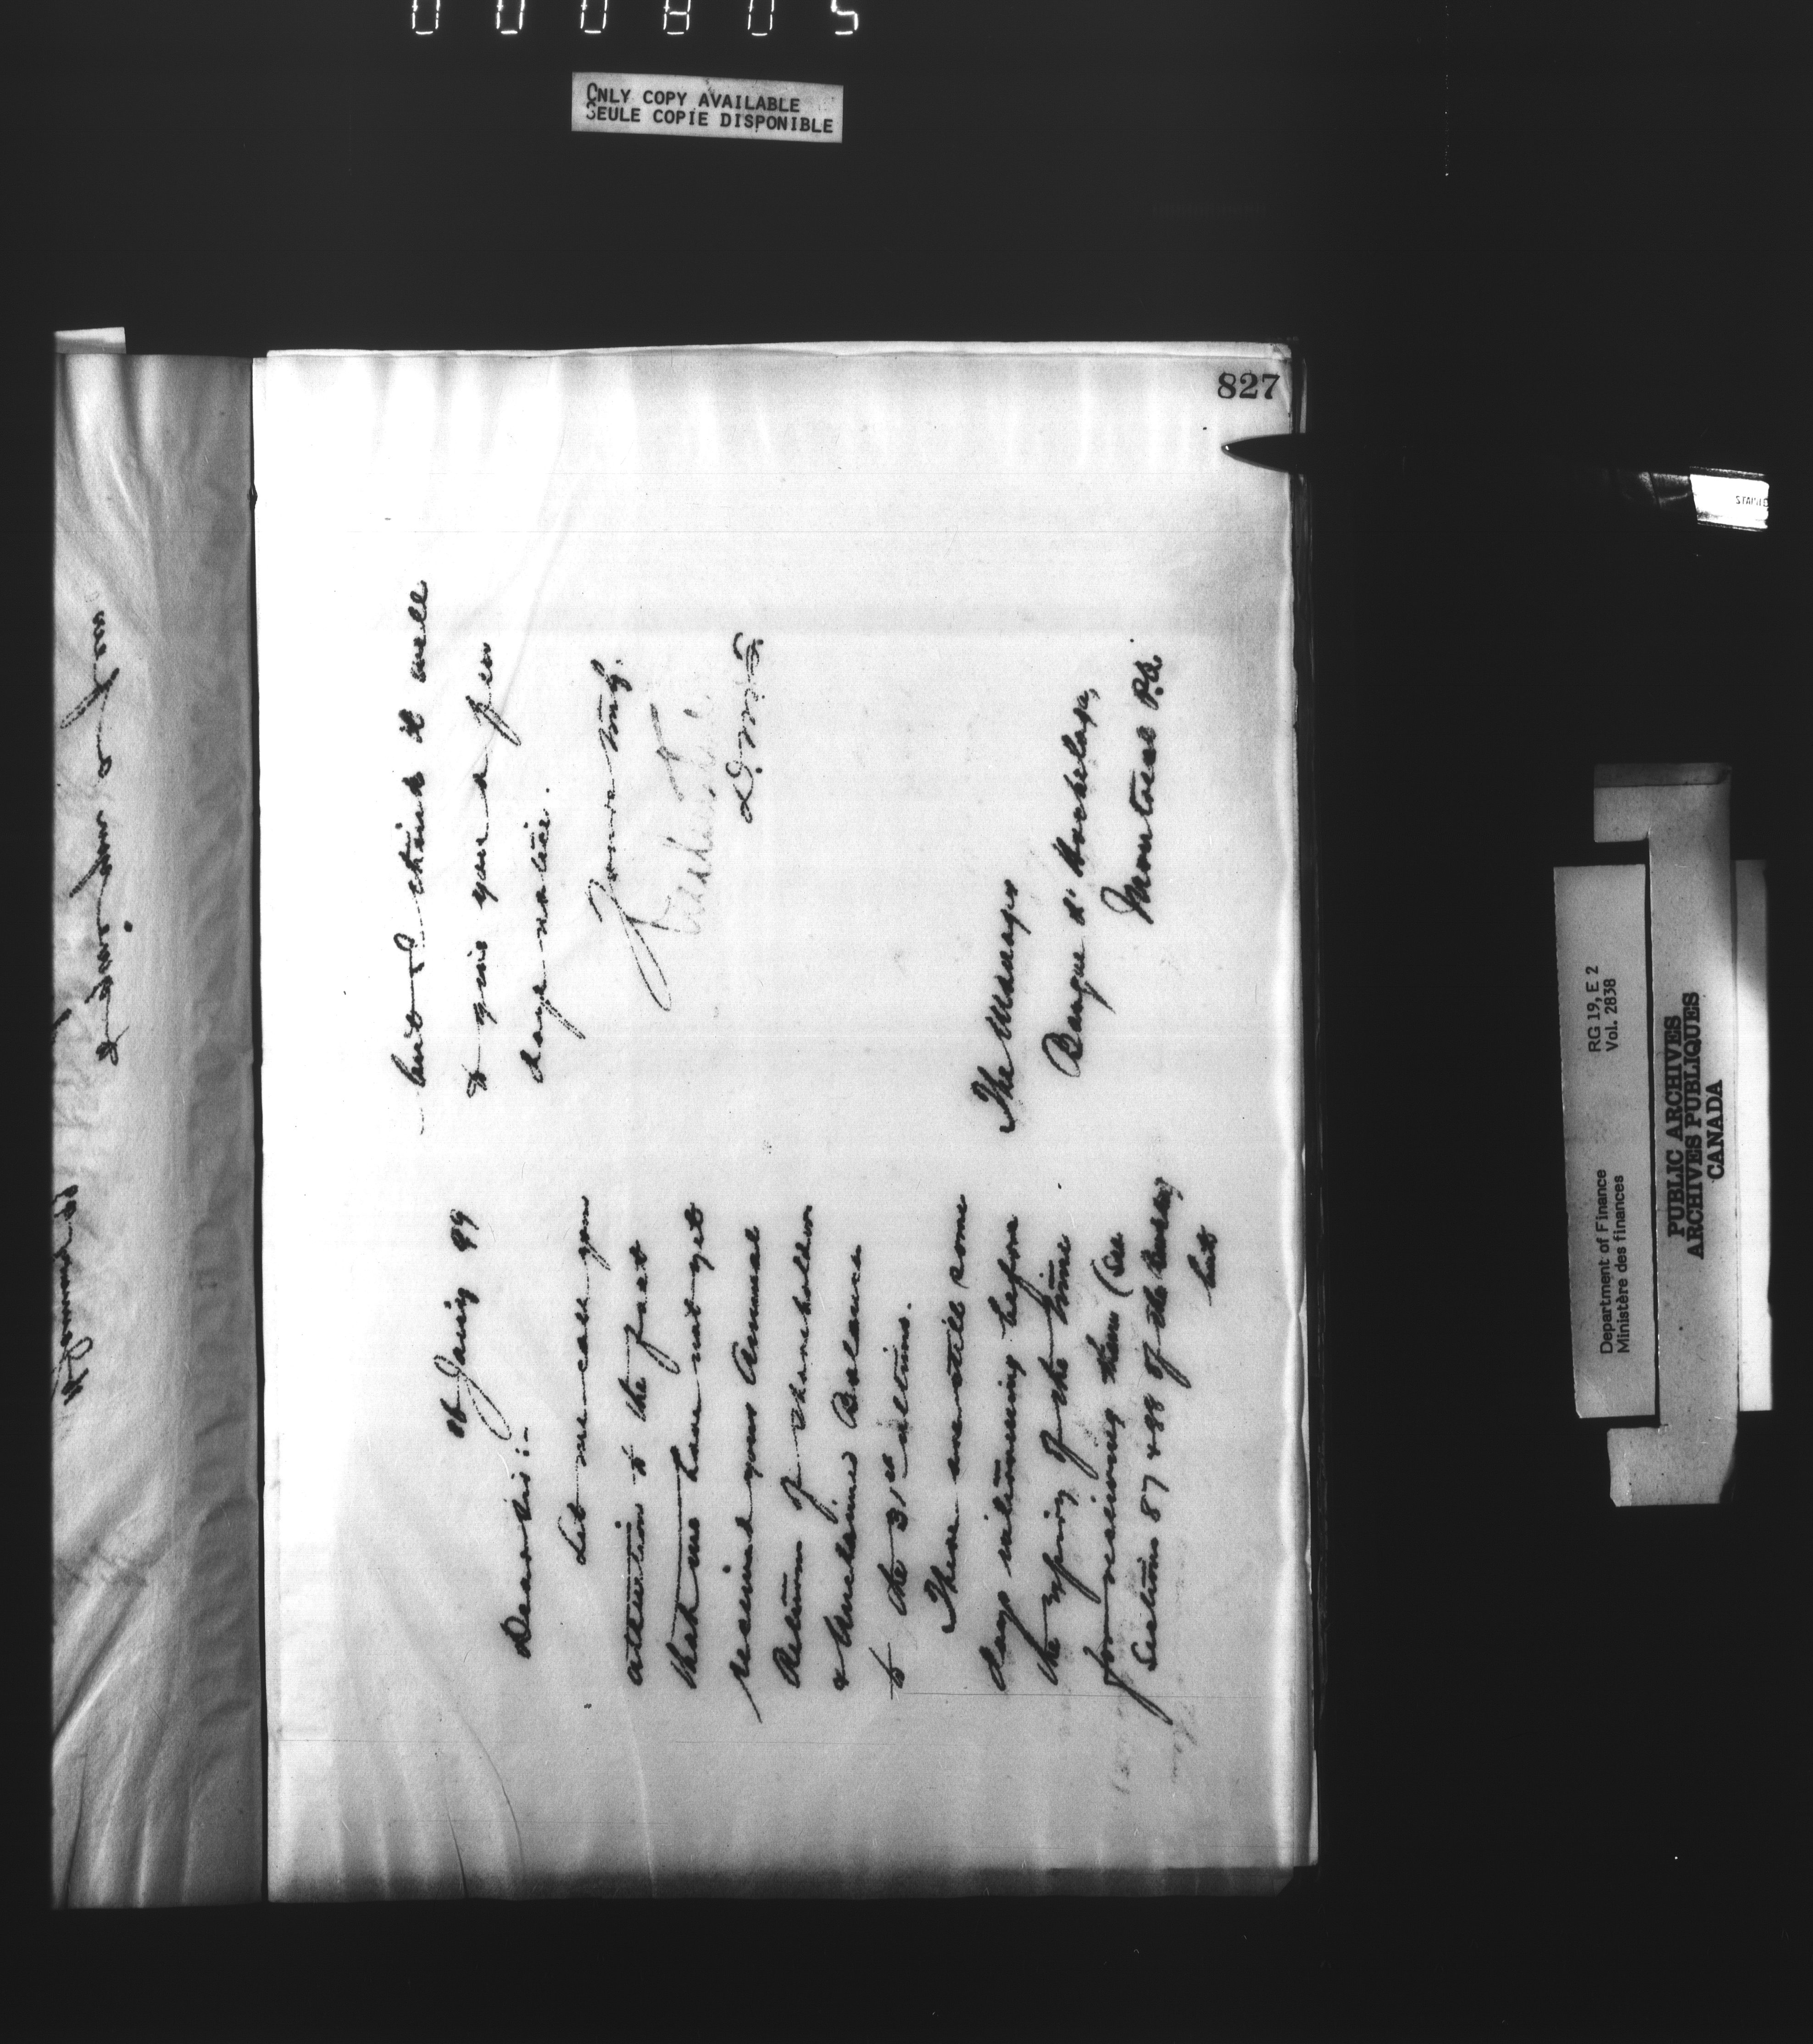 000805
ONLY COPY AVAILABLE
SEULE COPIE DISPONIBLE
827
Jany 99
Dear Sir:-
Let me call your
attention to the fact
that we have not yet
received your Annual
Return of shareholders
& Unclaimed Balances
to the 31st ultimo.
There are still some
days intervening before
the expiry of the time
for receiving them (See
Sections 87 & 88 of the
but
but I think it well
to give you a few
days notice.
Yours truly.
D.M.F.
The Manager
Banque d'Hochelaga,
Montreal P.Q.
Department of Finance
Ministère des finances
RG 19, E 2
Vol. 2838
PUBLIC ARCHIVES
ARCHIVES PUBLIQUES
CANADA